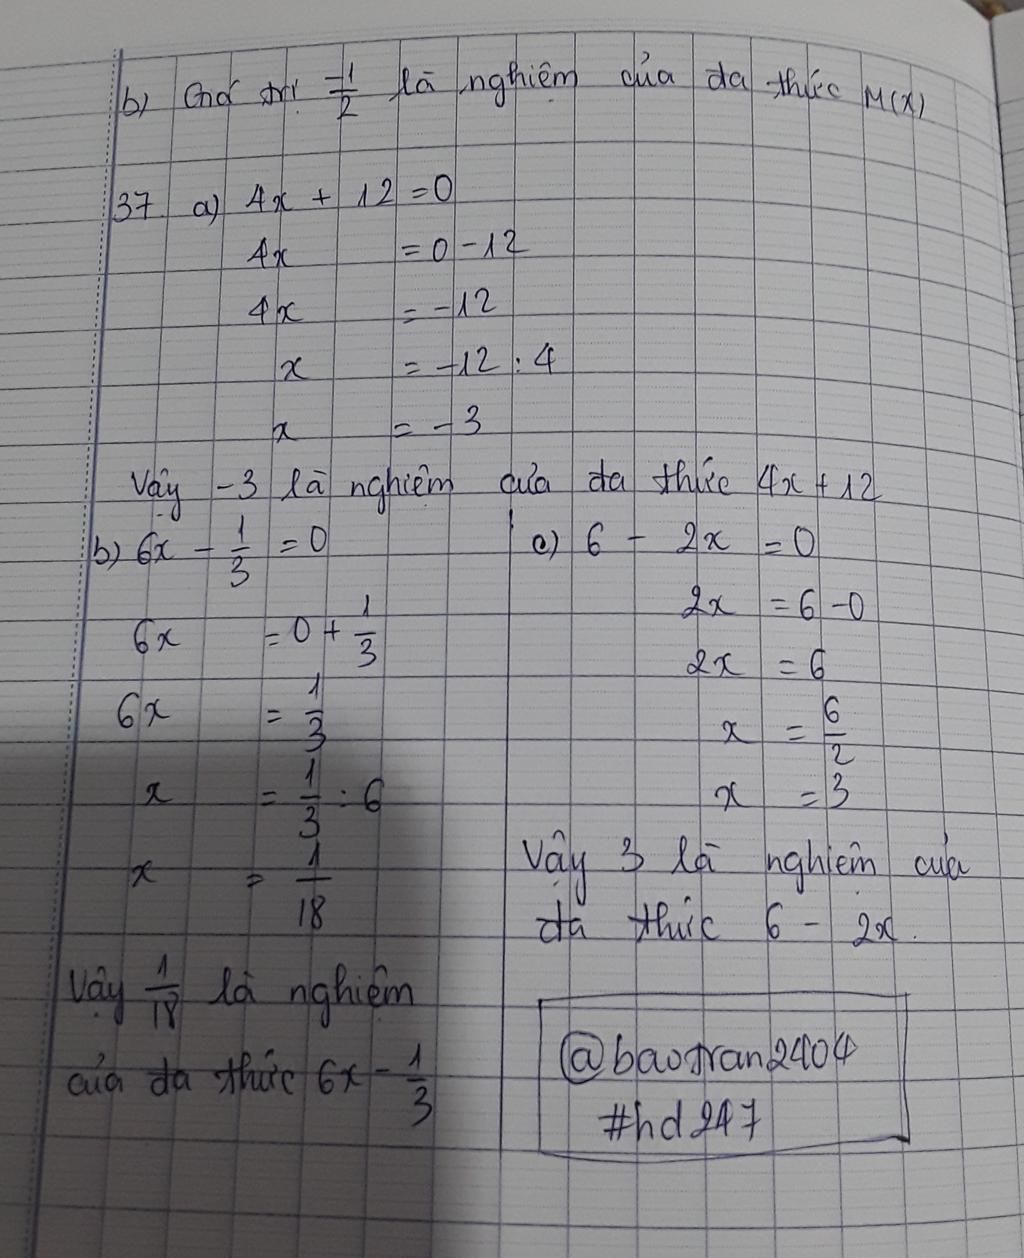 b) Giá trị -1/2 là nghiệm của đa thức M(x)
37. a) 4x + 12 = 0
4x = 0 - 12
4x = -12
x = -12 : 4
x = -3
Vậy -3 là nghiệm của đa thức 4x + 12
b) 6x - 1/3 = 0
6x = 0 + 1/3
6x = 1/3
x = 1/3 : 6
x = 1/18
Vậy 1/18 là nghiệm
của đa thức 6x - 1/3
c) 6 - 2x = 0
2x = 6 - 0
2x = 6
x = 6/2
x = 3
Vậy 3 là nghiệm của
đa thức 6 - 2x.
@baotran2404
#hd247